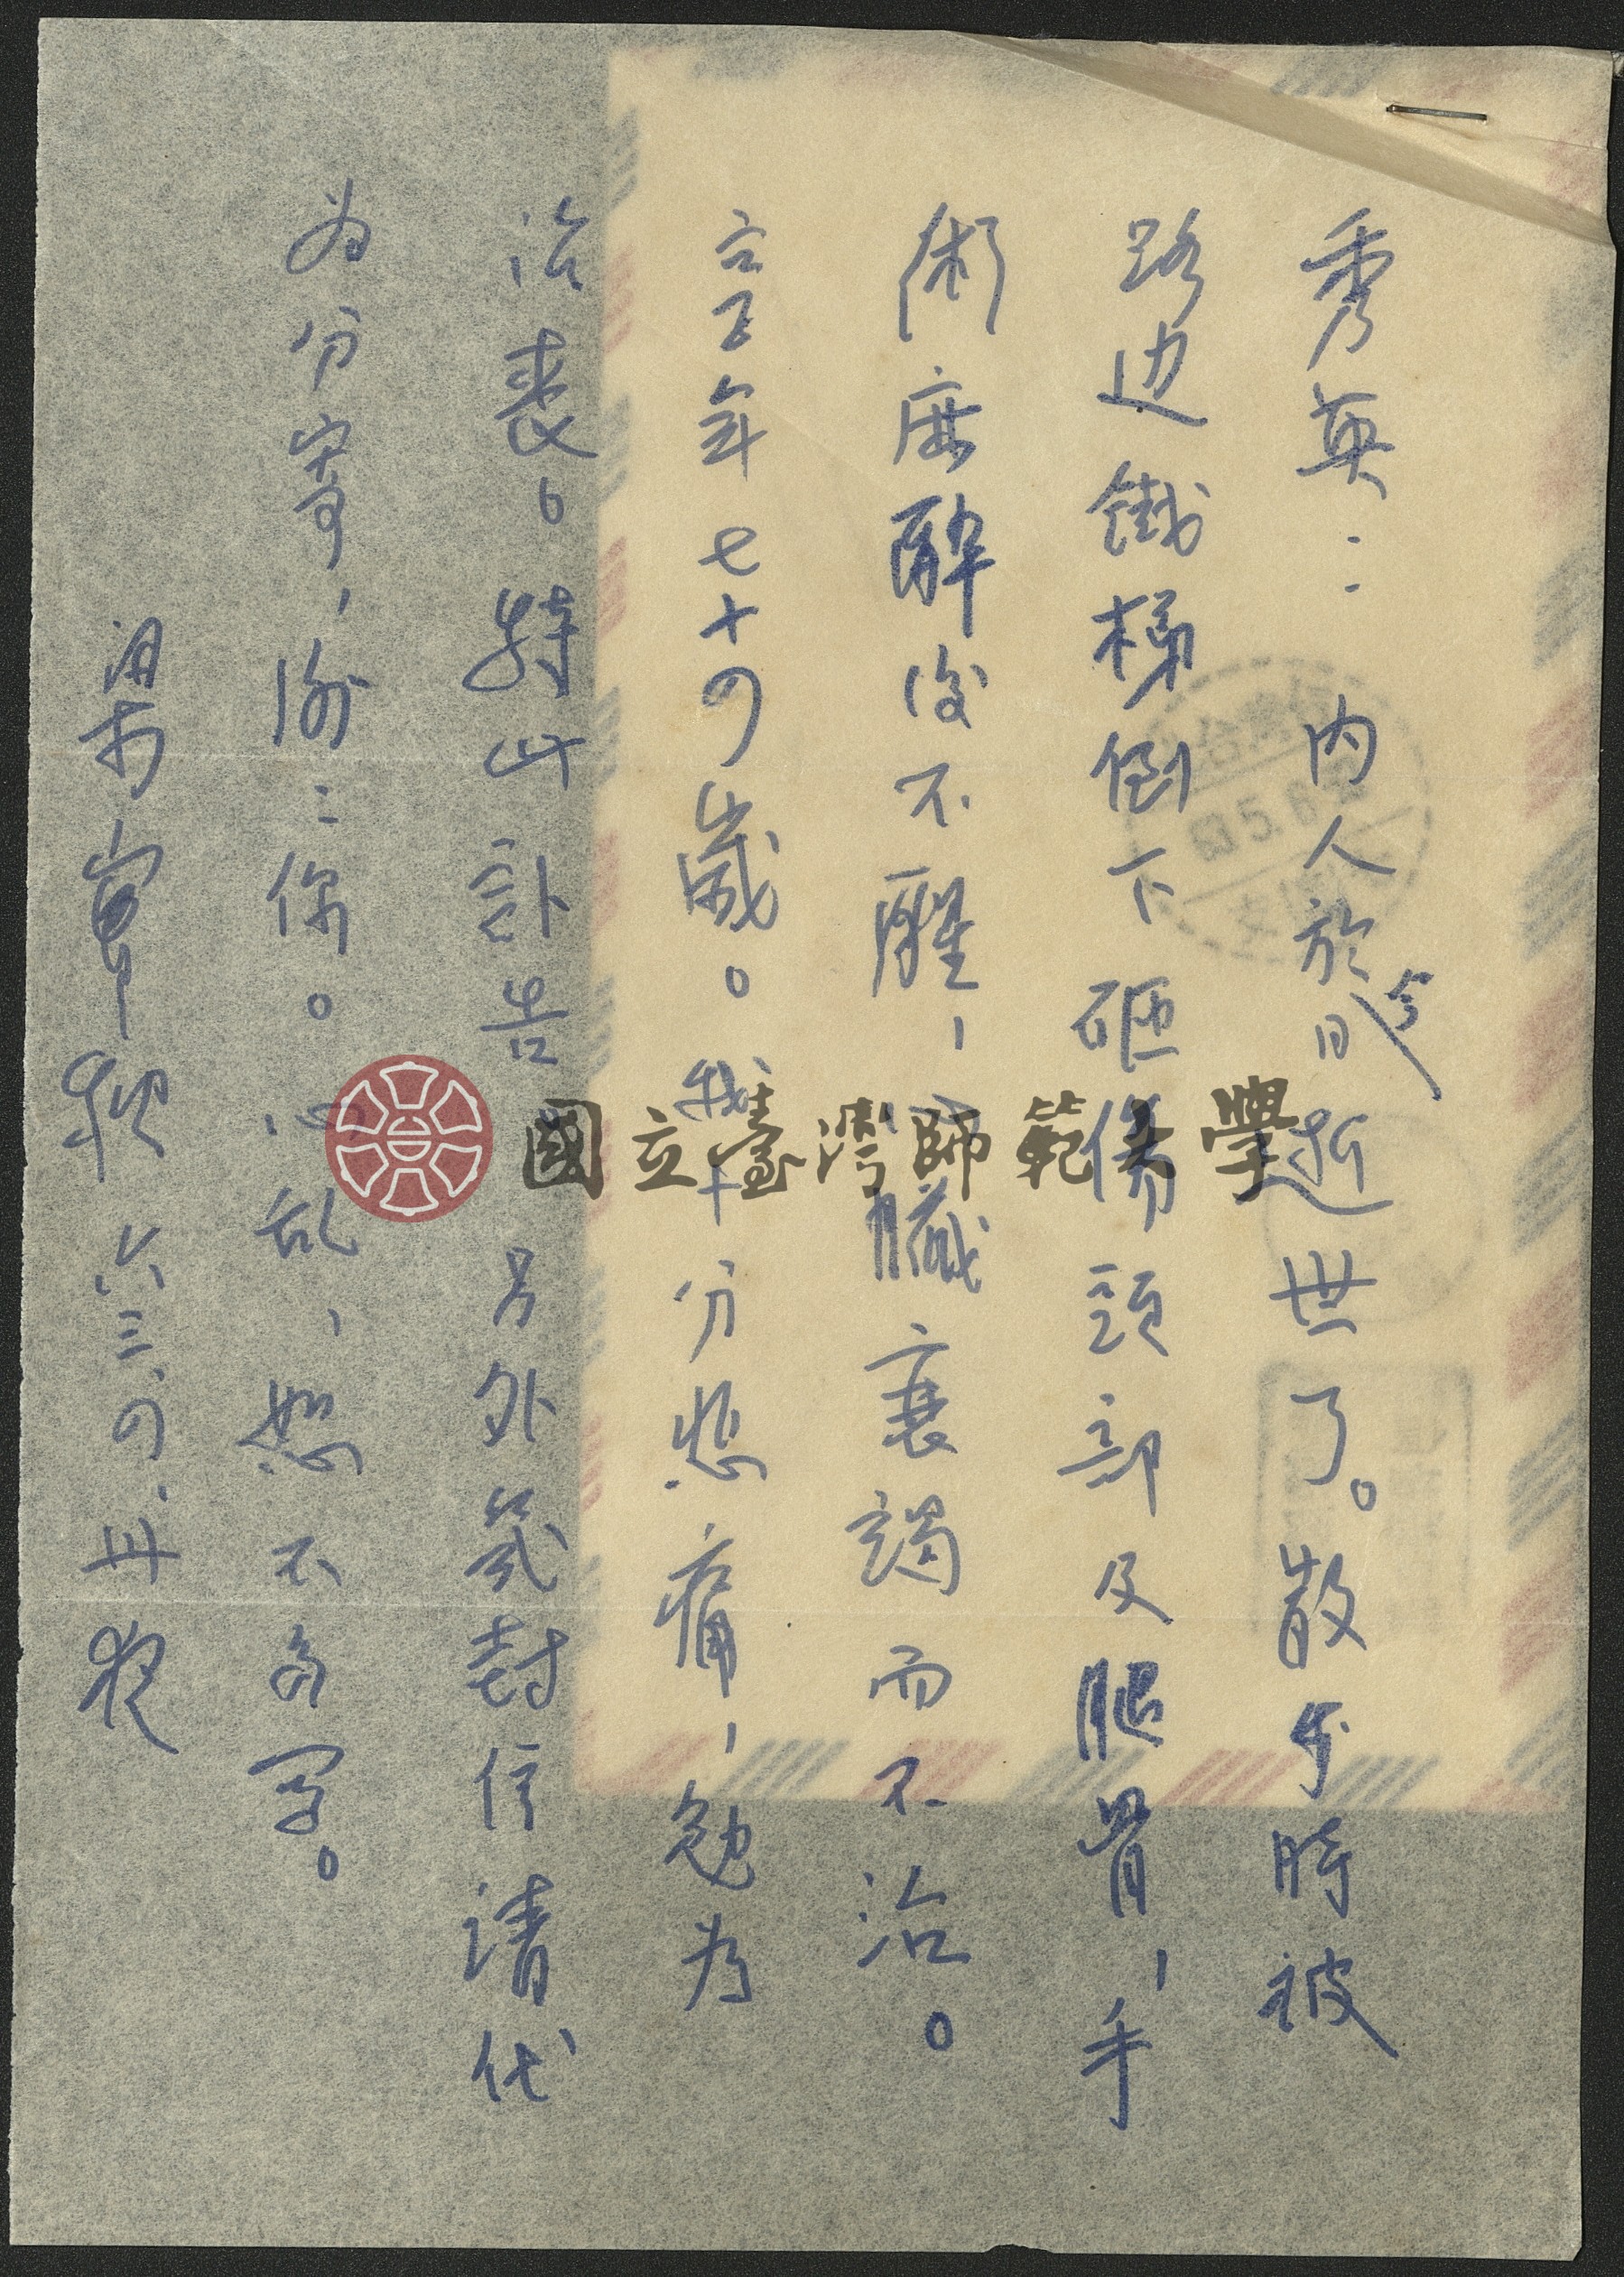 秀英： 內人於今日逝世了。散步時被
路边鐵梯倒下砸傷頭部及腿骨，手
術麻醉後不醒，心臟衰竭而不治。
享年七十四歲。我十分悲痛，勉为
治喪。特此訃告 另外幾封信请代
为分寄，謝：你。心乱，恕不多写。
梁实秋 六三、四、卅夜
國立臺灣師範大學